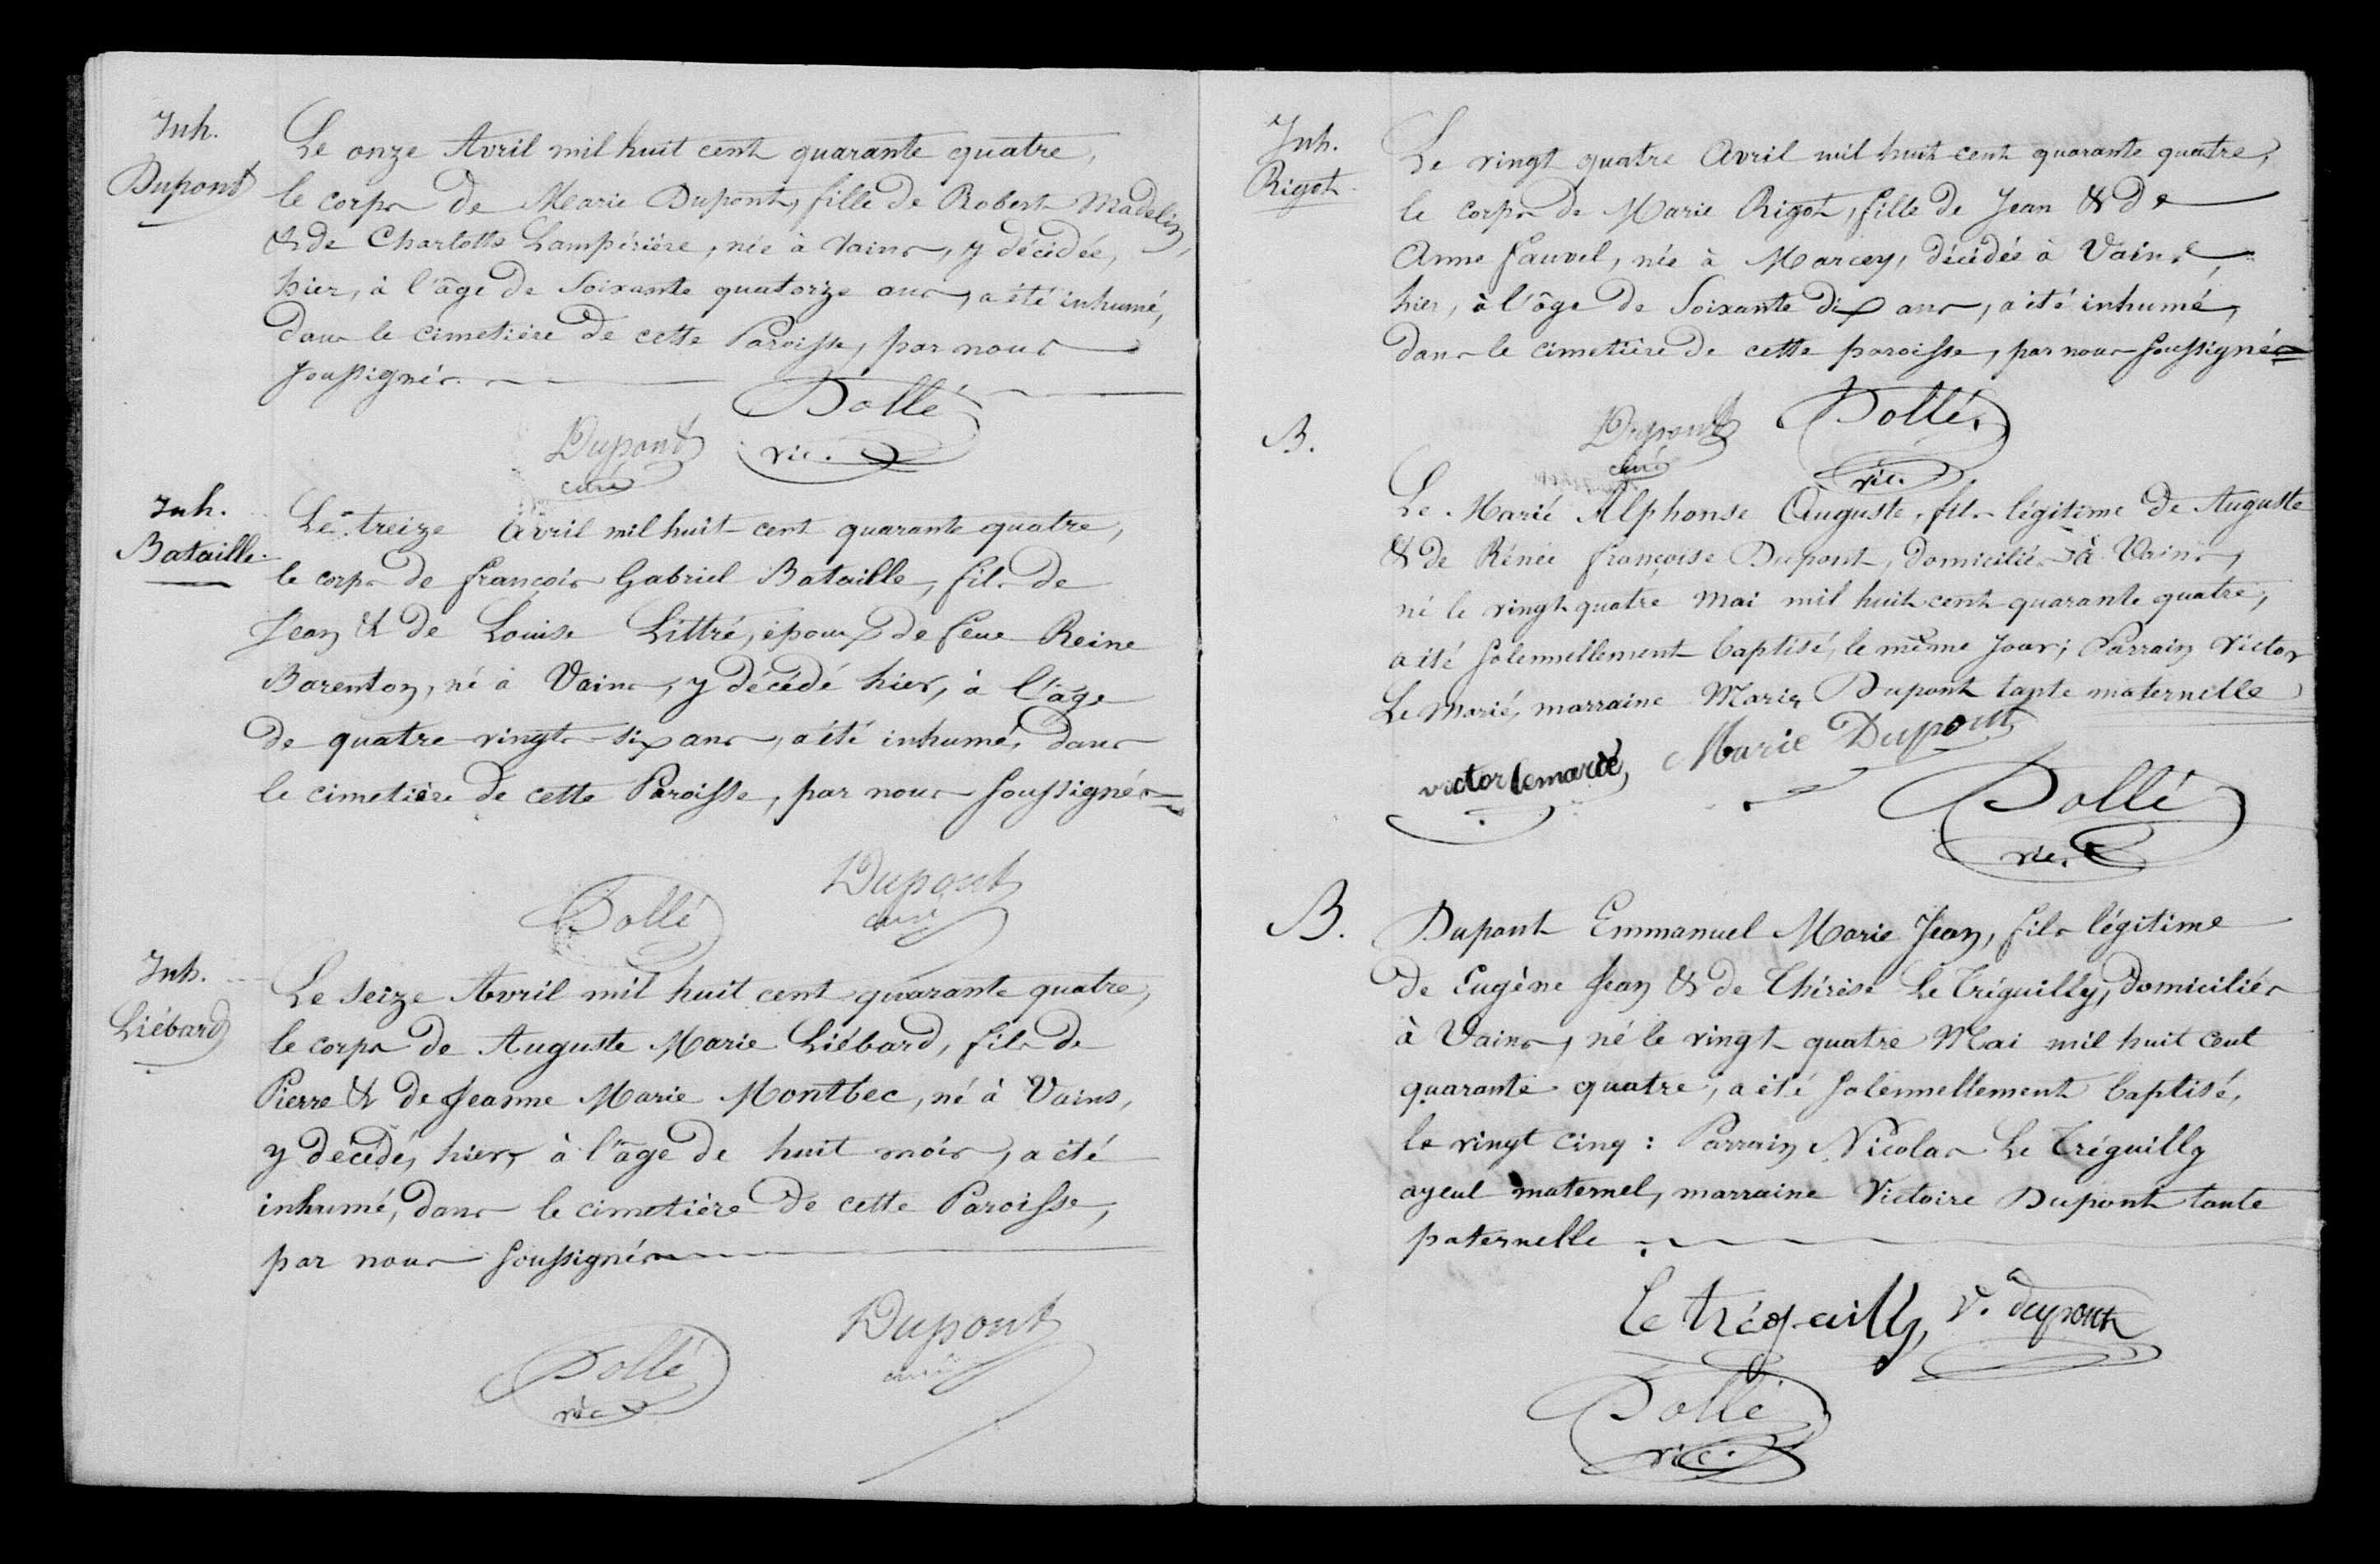 Inh.
Dupont
Le onze Avril mil huit cent quarante quatre,
le corps de Marie Dupont, fille de Robert Madelin,
& de Charlotte Lampérière, née à Vains, y décédée,
hier, à l'âge de Soixante quatorze ans, a été inhumé,
dans le cimetière de cette Paroisse, par nous
soussignés.
Dupont
curé
Dollé
vic.
Inh.
Bataille
Le treize Avril mil huit cent quarante quatre,
le corps de françois Gabriel Bataille, fils de
Jean & de Louise Littré, époux de feue Reine
Barenton, né à Vains, y décédé hier, à l'âge
de quatre vingt six ans, a été inhumé, dans
le cimetière de cette Paroisse, par nous soussignés
Dollé
Dupont
curé
Inh.
Liébard
Le seize Avril mil huit cent quarante quatre,
le corps de Auguste Marie Liébard, fils de
Pierre & de Jeanne Marie Montbec, né à Vains,
y décédé, hier, à l'âge de huit mois, a été
inhumé, dans le cimetière de cette Paroisse,
par nous soussignés
Dollé
vic
Dupont
curé
Inh.
Rigot
Le vingt quatre Avril mil huit cent quarante quatre,
le corps de Marie Rigot, fille de Jean & de
Anne fauvel, née à Marcey, décédée à Vains,
hier, à l'âge de Soixante dix ans, a été inhumé,
dans le cimetière de cette paroisse, par nous soussignés
Dupont
curé
Dollé
vic.
B.
Le Marié Alphonse Auguste, fils légitime de Auguste
& de Rénée françoise Dupont, domiciliés à Vains,
né le vingt quatre Mai mil huit cent quarante quatre,
a été solennellement baptisé, le même jour; Parrain Victor
Le Marié, marraine Marie Dupont tante maternelle
victor lemarié, Marie Dupont
Dollé
vic.
B.
Dupont Emmanuel Marie Jean, fils légitime
de Eugène Jean & de Thérèse Le Tréguilly, domiciliés
à Vains, né le vingt quatre Mai mil huit cent
quarante quatre, a été solennellement baptisé,
le vingt cinq : Parrain Nicolas Le Tréguilly
ayeul maternel, marraine Victoire Dupont tante
paternelle
Le tréguilly, V. dupont
Dollé
vic.